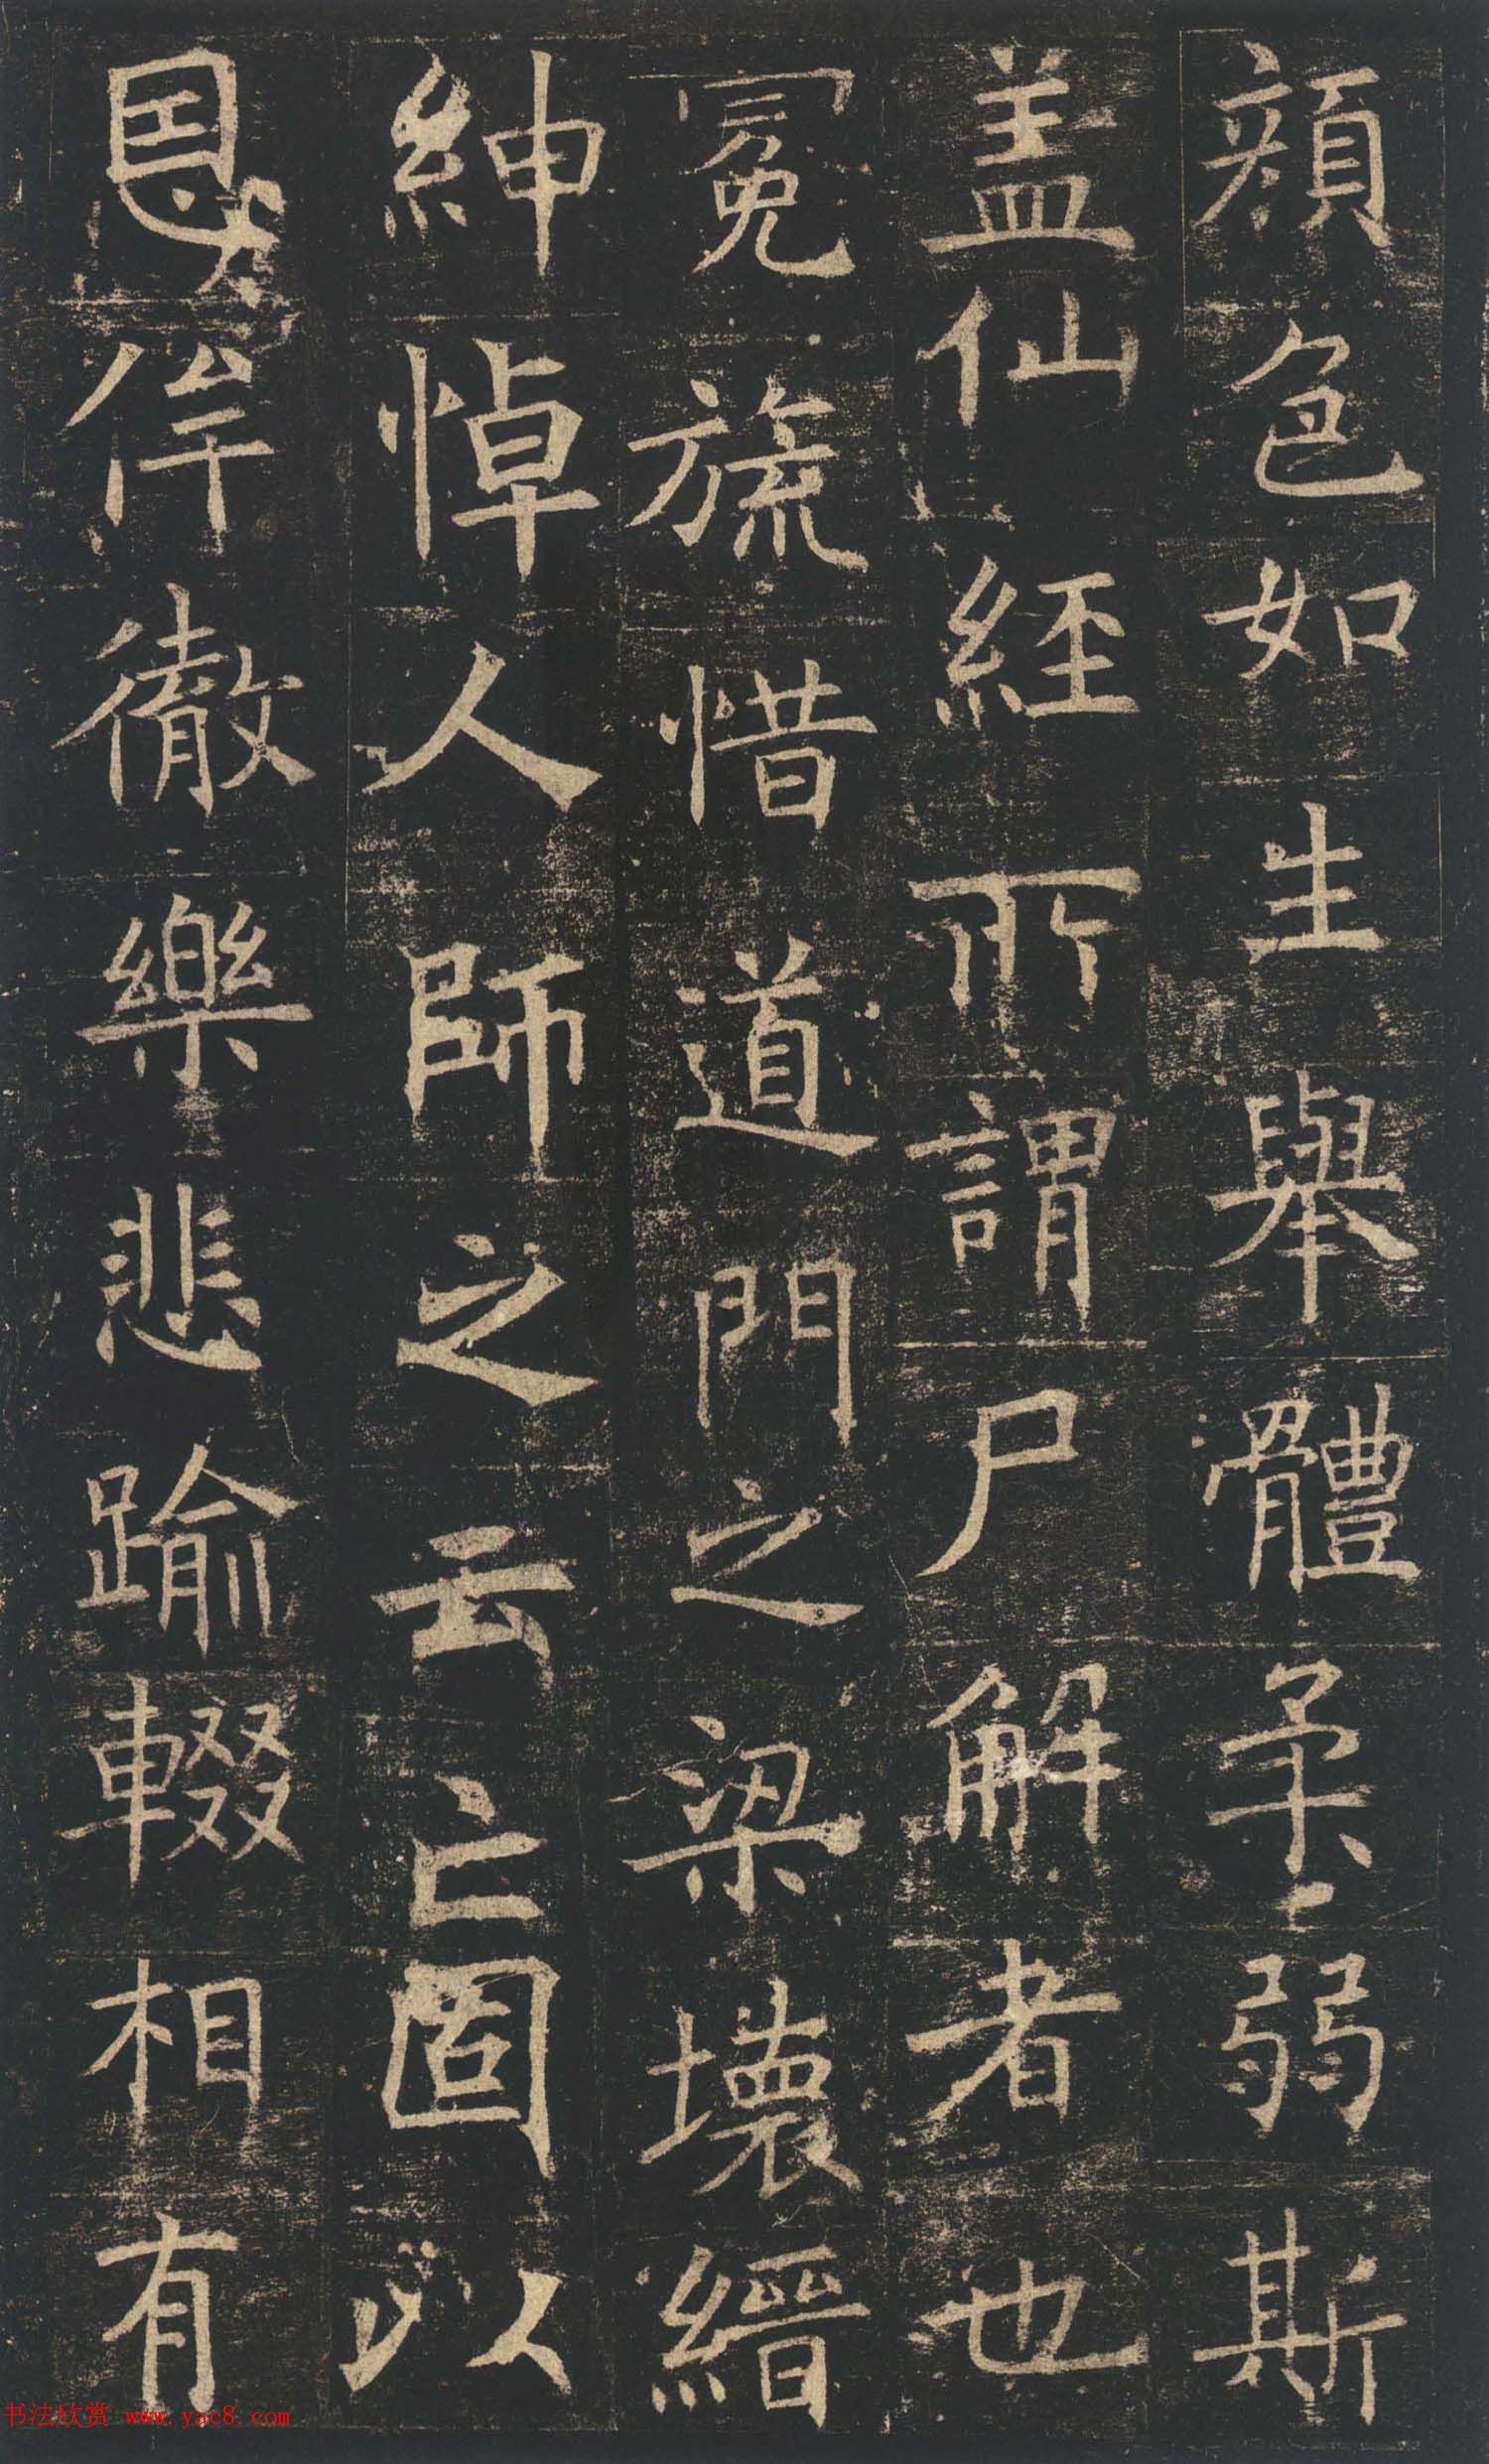 顔色如生舉體柔弱斯
盖仙經所謂尸解者也
冕旒惜道門之梁壞縉
紳悼人師之云亡固以
恩侔徹樂悲踰輟相有
书法欣赏 www.yac8.com